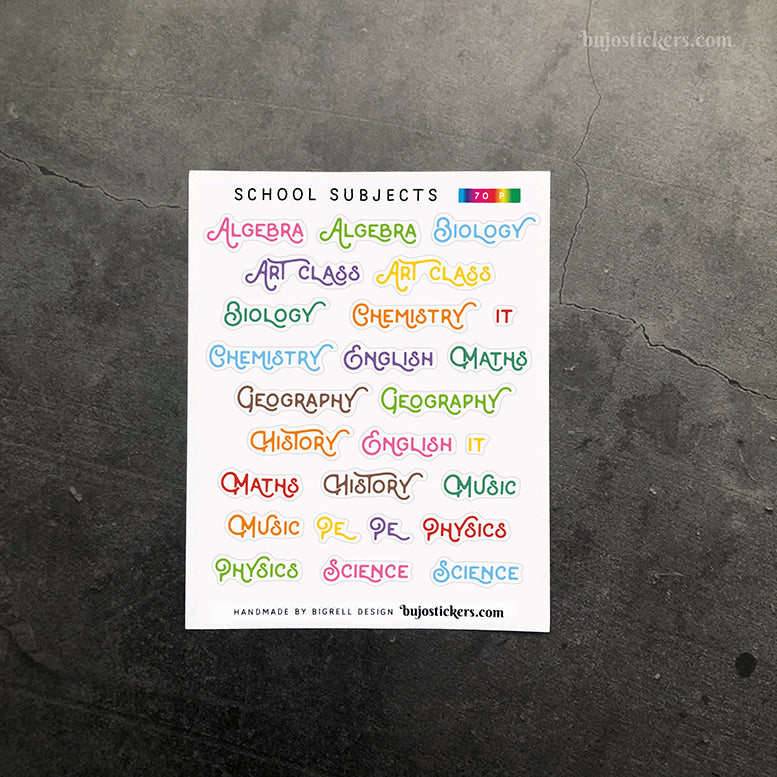 bujostickers.com
SCHOOL SUBJECTS 70 P
ALGEBRA ALGEBRA BIOLOGY
ART CLASS ART CLASS
BIOLOGY CHEMISTRY IT
CHEMISTRY ENGLISH MATHS
GEOGRAPHY GEOGRAPHY
HISTORY ENGLISH IT
MATHS HISTORY MUSIC
MUSIC PE PE PHYSICS
PHYSICS SCIENCE SCIENCE
HANDMADE BY BIGRELL DESIGN bujostickers.com